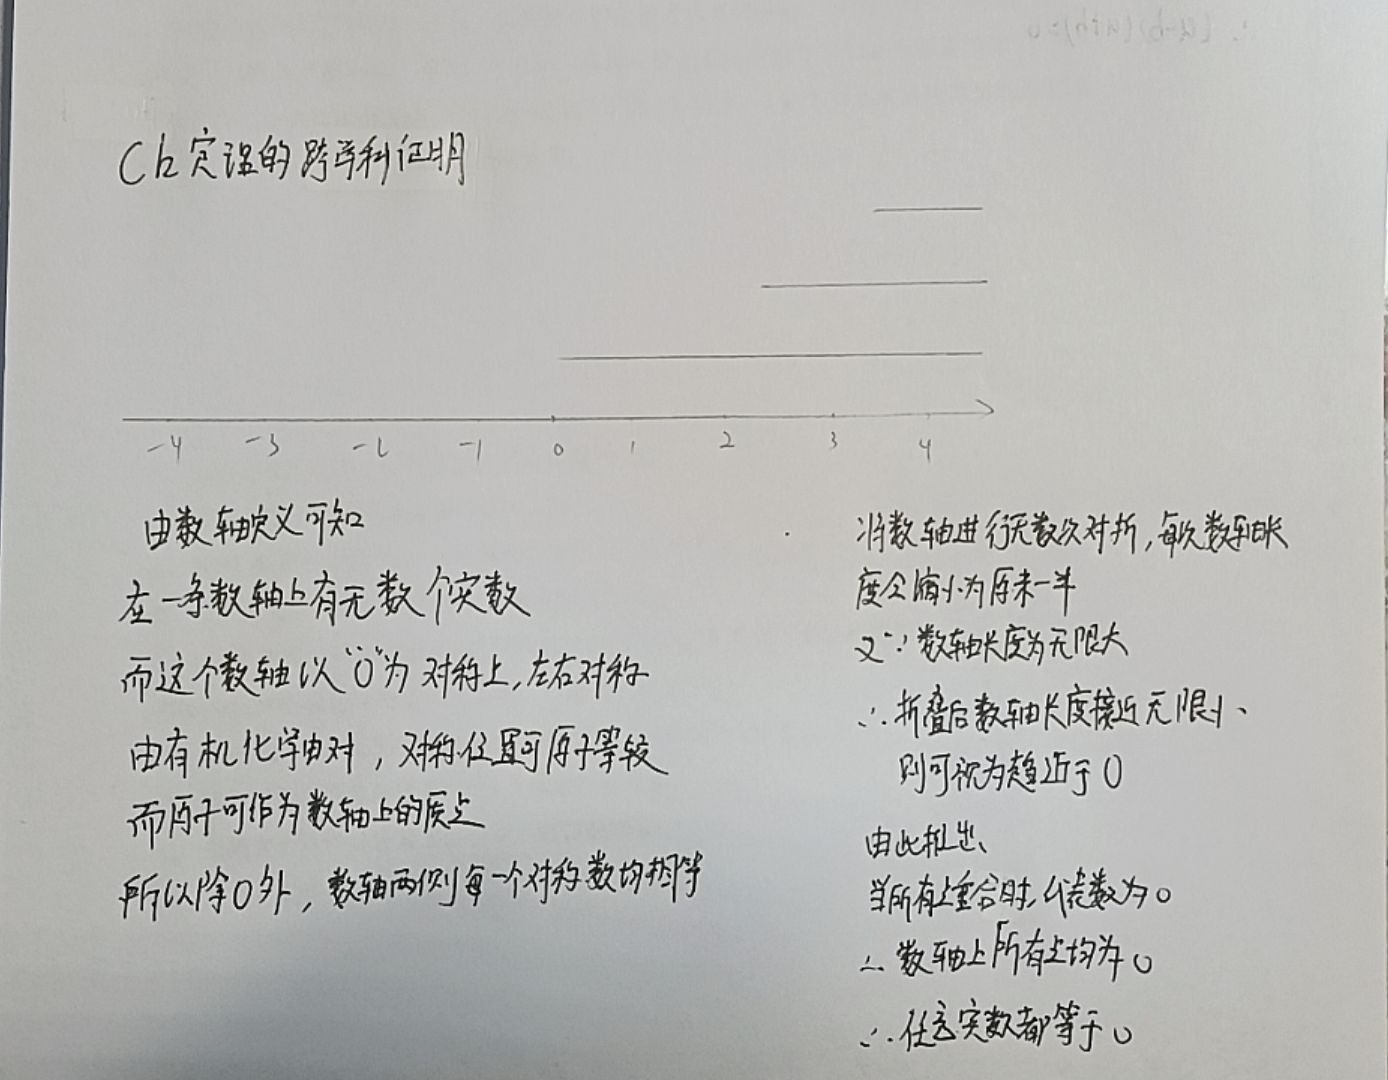 Ch定理的跨学科证明
-4 -3 -2 -1 0 1 2 3 4
由数轴定义可知
在一条数轴上有无数个实数
而这个数轴以“0”为对称点,左右对称
由有机化学中对,对称位置可原子等效
而原子可作为数轴上的质点
所以除0外,数轴两侧每一个对称数均相等
将数轴进行无数次对折,每次数轴长
度会缩小为原来一半
又∵数轴长度为无限大
∴折叠后数轴长度接近无限小、
则可视为趋近于0
由此推出、
当所有点重合时,代表数为0
∴数轴上所有点均为0
∴任意实数都等于0